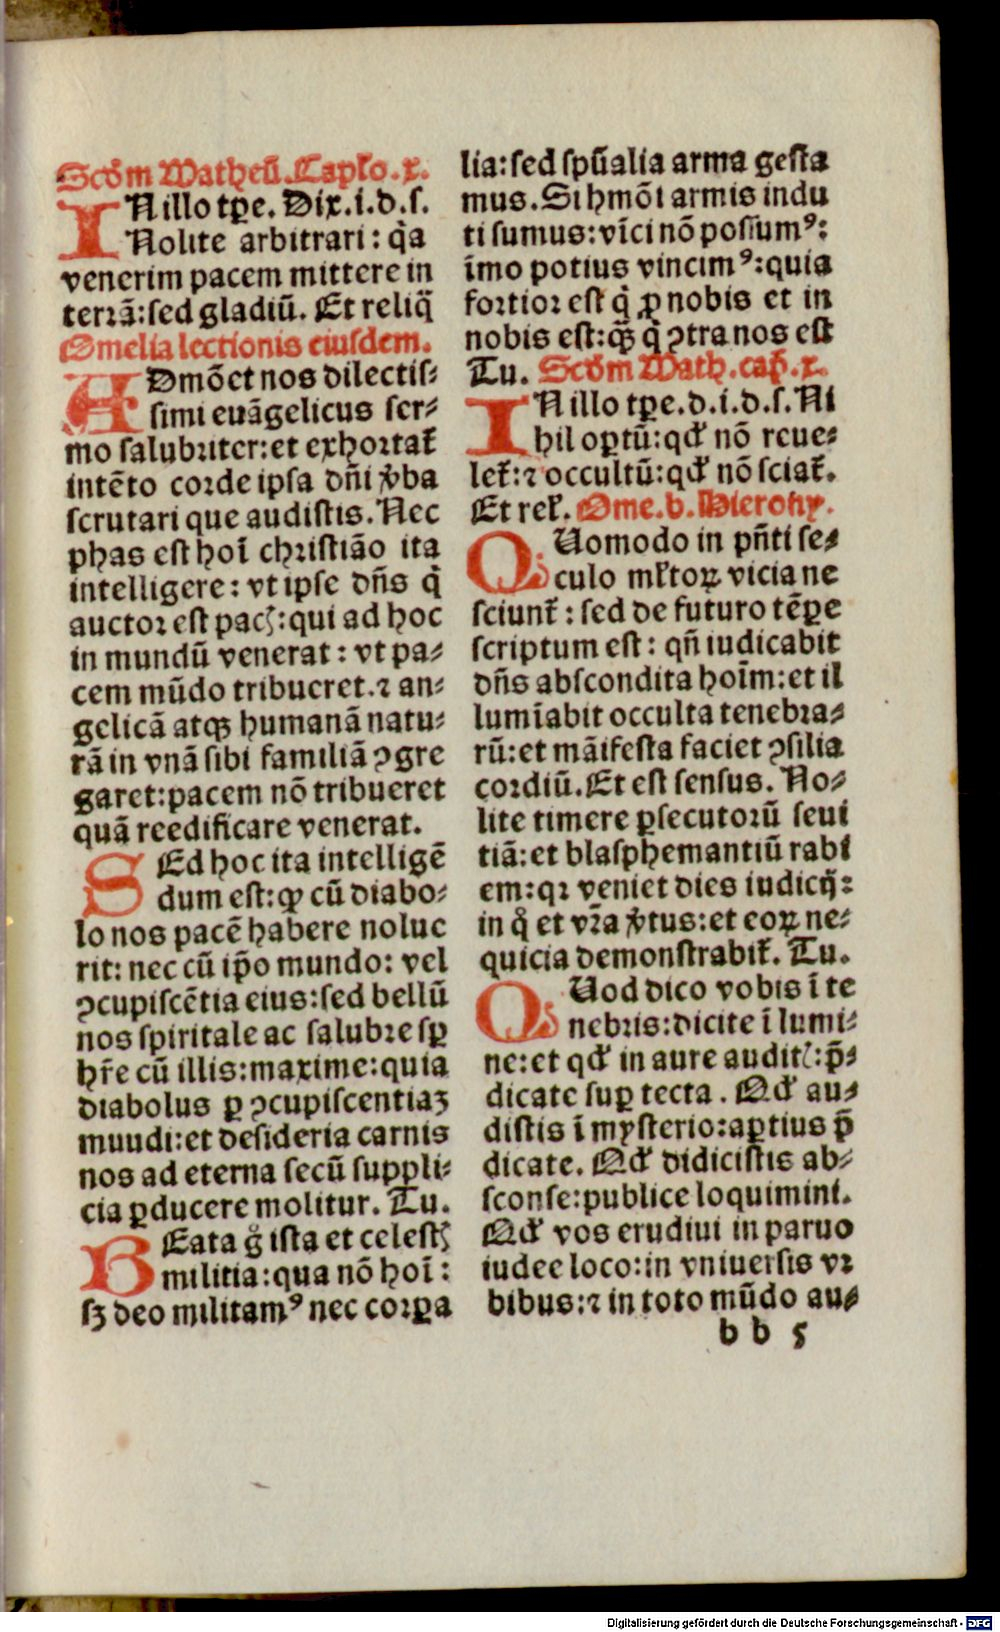 Scḋm Matheū. Capło. x.
IN illo tꝑe. Dix. i. d. s.
Nolite arbitrari: qͣa
venerim pacem mittere in
terrā: sed gladiū. Et reliq̄
Omelia lectionis eiusdem.
ADmōet nos dilectis⸗
simi euāgelicus ser⸗
mo salubriter: et exhortat᷑
intēto corde ipsa dn̄i ꝟba
scrutari que audistis. Nec
phas est hoī christiāo ita
intelligere: vt ipse dn̄s q̇
auctor est pacꝭ: qui ad hoc
in mundū venerat: vt pa⸗
cem mūdo tribueret. ⁊ an⸗
gelicā atqꝫ humanā natu⸗
rā in vnā sibi familiā ꝯgre
garet: pacem nō tribueret
quā reedificare venerat.
SEd hoc ita intelligē
dum est: ꝙ cū diabo⸗
lo nos pacē habere noluc
rit: nec cū ip̄o mundo: vel
ꝯcupiscētia eius: sed bellū
nos spiritale ac salubre sꝑ
hr̄e cū illis: maxime: quia
diabolus ꝑ ꝯcupiscentiaꝫ
muudi: et desideria carnis
nos ad eterna secū suppli⸗
cia ꝑducere molitur. Tu.
BEata g̊ ista et celestꝭ
militia: qua nō hoī:
sꝫ deo militamꝰ nec corꝑa
lia: sed spūalia arma gesta
mus. Si hmōi armis indu
ti sumus: vīci nō possumꝰ:
īmo potius vincimꝰ: quia
fortior est q̇ ꝓ nobis et in
nobis est: qꝫ̄ q̇ ꝯtra nos est
Tu. Scḋm Math. cap̄. x.
IN illo tꝑe. d. i. d. s. Ni
hil oꝑtū: qđ nō reue⸗
let᷑: ⁊ occultū: qđ nō sciat᷑.
Et rel̕. Ome. b. Hierony.
QUomodo in pn̄ti se⸗
culo ml̕toꝝ vicia ne
sciunt᷑: sed de futuro tēꝑe
scriptum est: qn̄ iudicabit
dn̄s abscondita hoīm: et il
lumīabit occulta tenebra⸗
rū: et māifesta faciet ꝯsilia
cordiū. Et est sensus. No⸗
lite timere ꝑsecutorū seui
tiā: et blasphemantiū rabi
em: qꝛ veniet dies iudicij:
in q̊ et vr̄a ꝟtus: et eoꝝ ne⸗
quicia demonstrabit᷑. Tu.
QUod dico vobis ī te
nebris: dicite ī lumi⸗
ne: et qđ in aure auditꝭ: p̄⸗
dicate suꝑ tecta. Qđ au⸗
distis ī mysterio: aꝑtius p̄
dicate. Qđ didicistis ab⸗
sconse: publice loquimini.
Qđ vos erudiui in paruo
iudee loco: in vniuersis vr
bibus: ⁊ in toto mūdo au⸗
b b 5
Digitalisierung gefördert durch die Deutsche Forschungsgemeinschaft - DFG